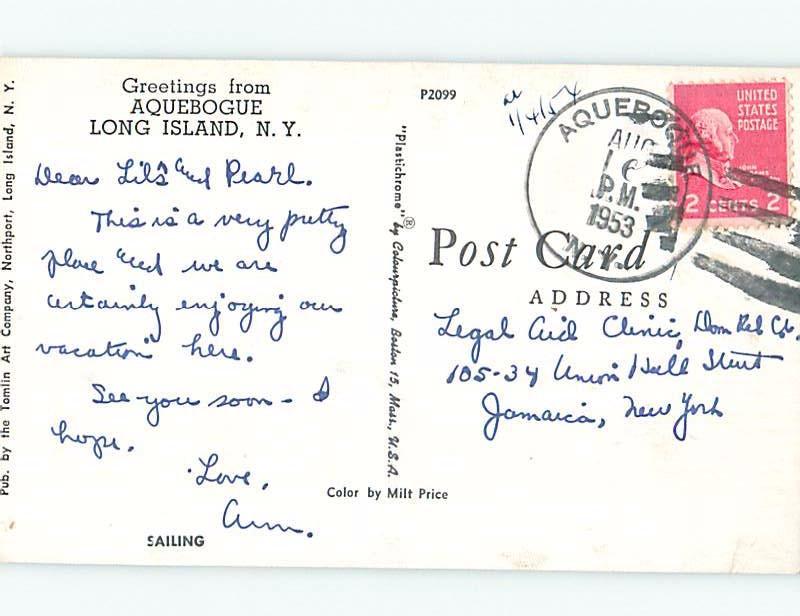 Greetings from
AQUEBOGUE
LONG ISLAND, N. Y.
Dear Lil's and Pearl.
This is a very pretty
place and we are
certainly enjoying our
vacation here.
See you soon - I
hope.
Love,
Ann.
SAILING
Pub. by the Tomlin Art Company, Northport, Long Island, N. Y.
"Plastichrome"® by Colourpicture, Boston 15, Mass., U.S.A.
P2099
1/4/54
AQUEBOGUE
AUG
6
P.M.
1953
N.Y.
UNITED
STATES
POSTAGE
JOHN
2 CENTS 2
Post Card
ADDRESS
Legal Aid Clinic, Dom Rel Ct.
105-34 Union Hall Street
Jamaica, New York
Color by Milt Price